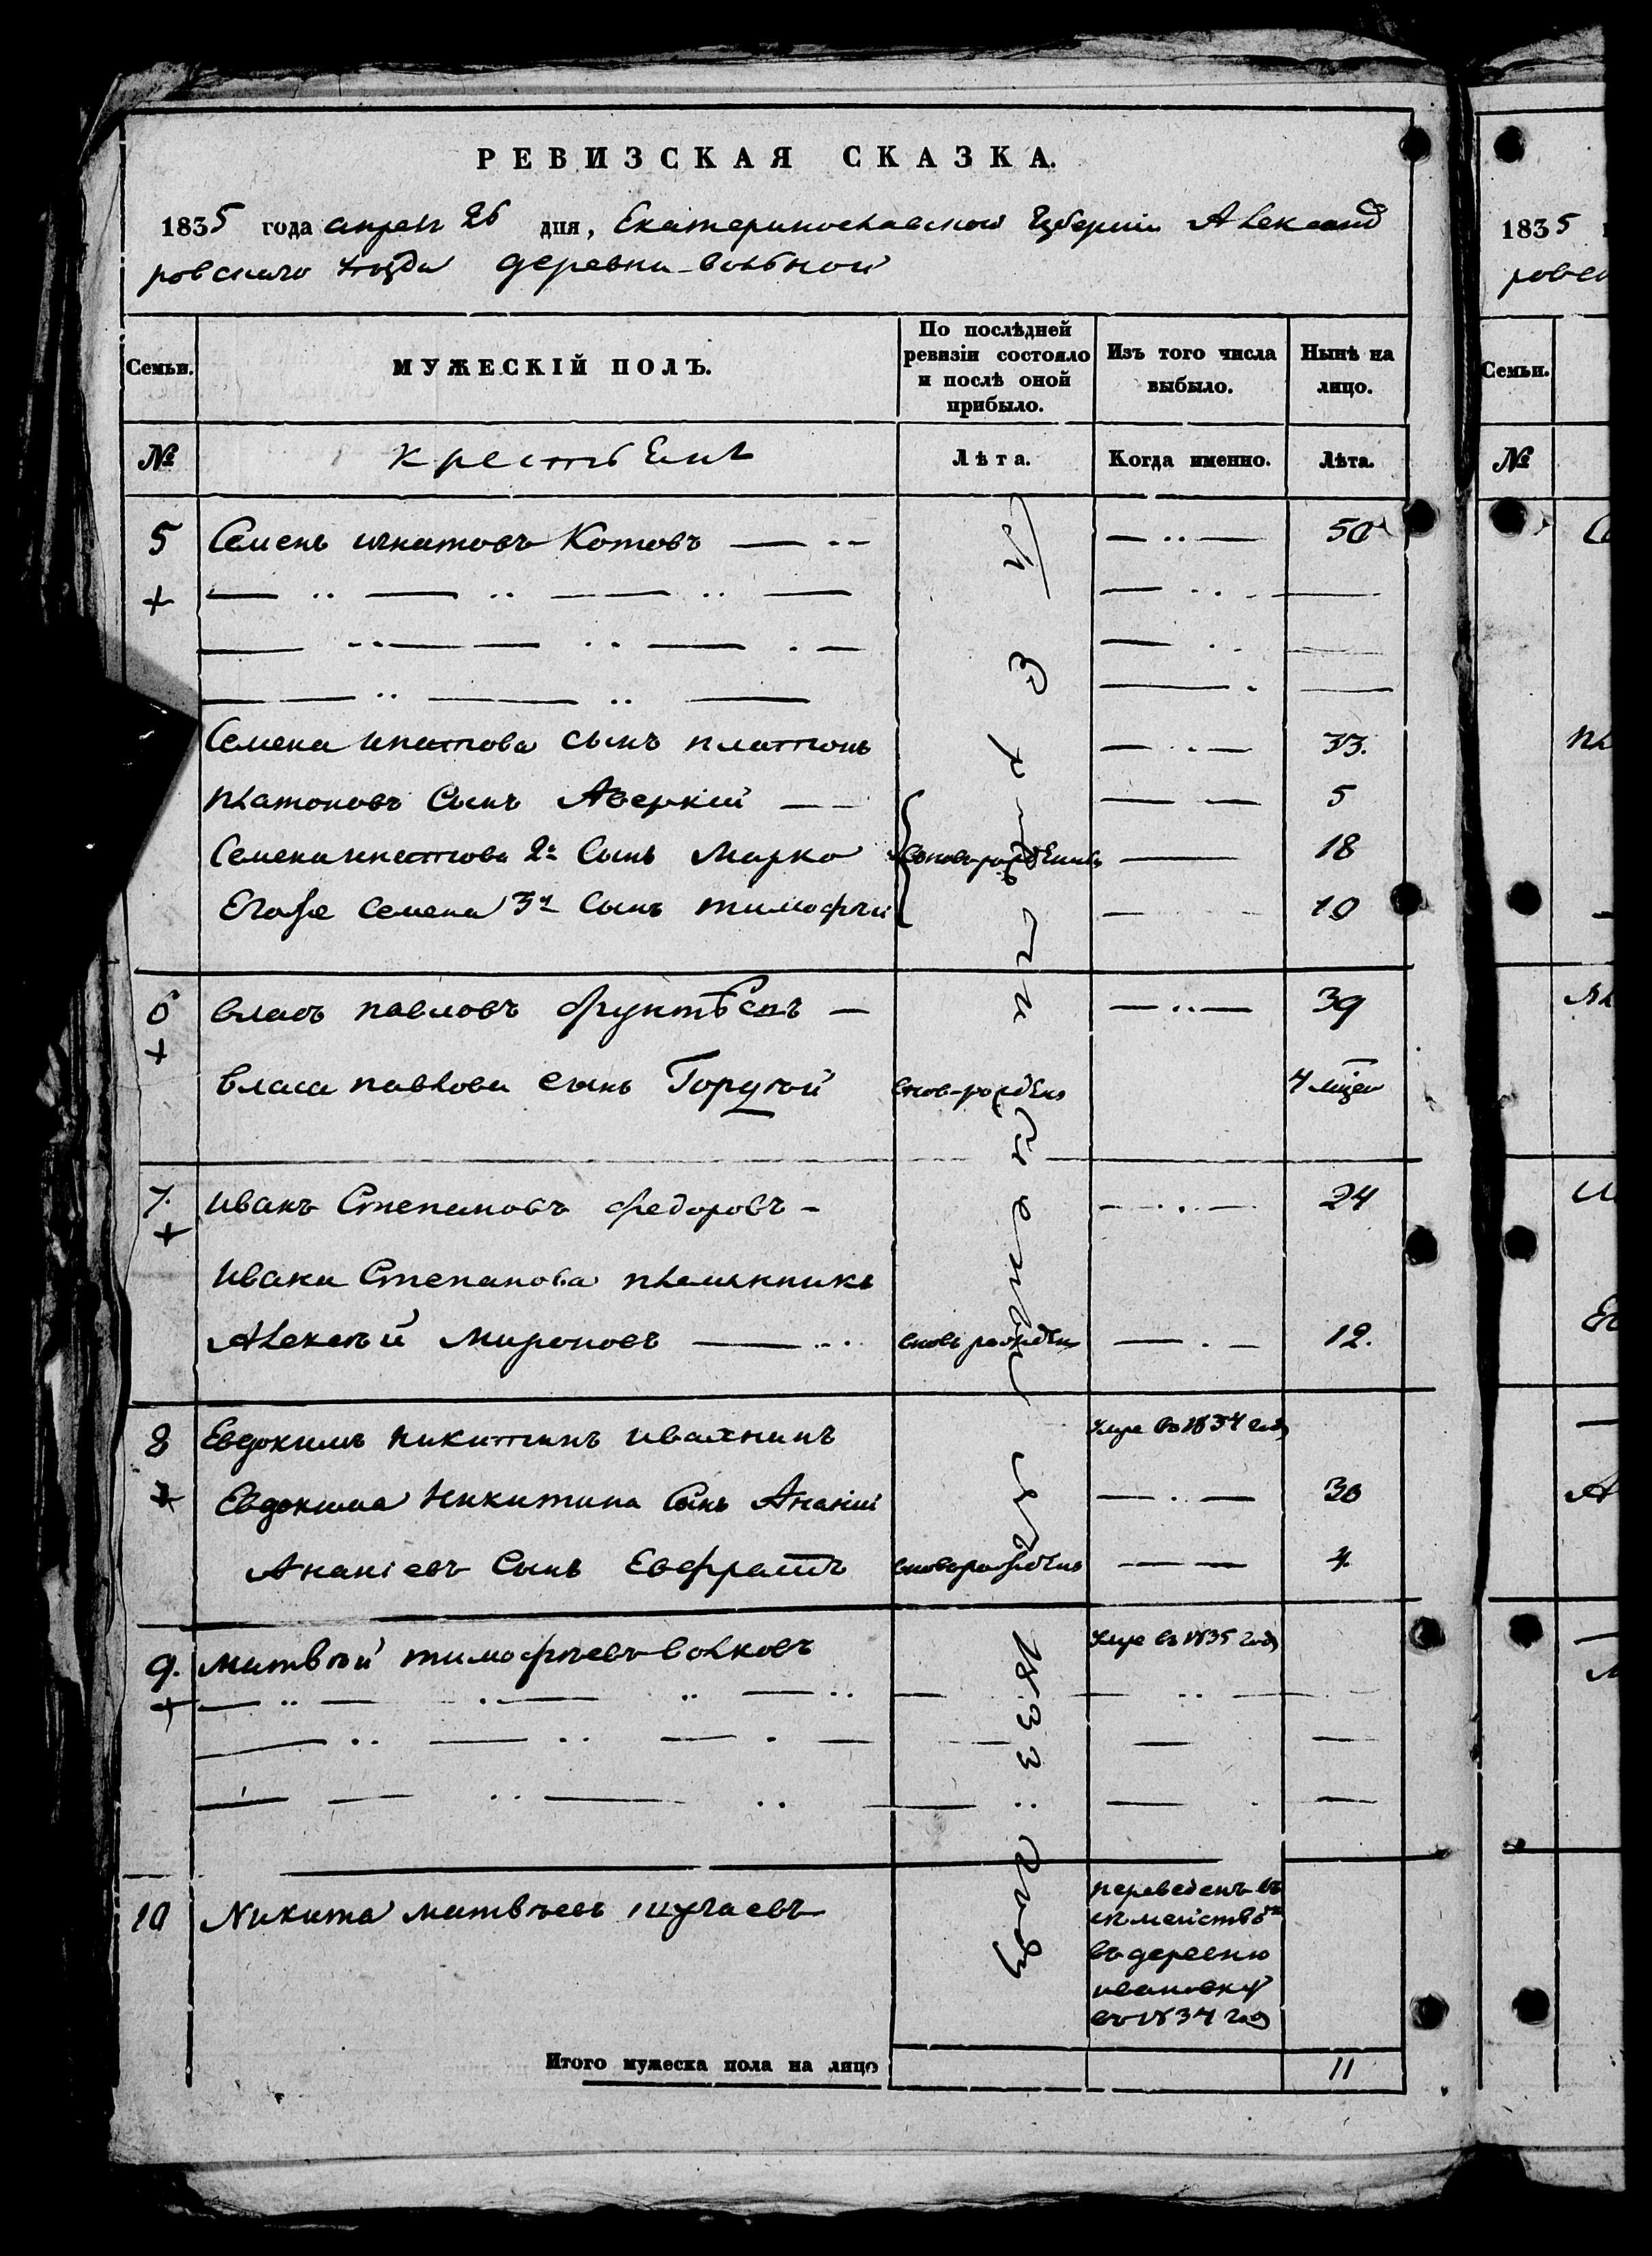 РЕВИЗСКАЯ СКАЗКА.
1835 года апреля 26 дня, Екатеринославской Губернии Александ
ровскаго уезда деревни Вольной
Семьи.
МУЖЕСКІЙ ПОЛЪ.
По послѣдней ревизіи состояло и послѣ оной прибыло.
Изъ того числа выбыло.
Нынѣ на лицо.
№
Крестьяне
Лѣта.
Когда именно.
Лѣта.
5 Семенъ Игнатовъ Котовъ 50
Семена Игнатова сынъ Платонъ 33.
Платоновъ Сынъ Аверкий 5
Семена Игнатова 2й Сынъ Марко вновь рожденны 18
Егоже Семена 3й Сынъ тимофей 10
6 Власъ Павловъ 39
Власа Павлова сынъ вновь рожден 4 месец
7. Иванъ Степановъ Федоровъ 24
Ивана Степанова племянникъ
Алексѣй Мироновъ вновь рожден 12.
8 Евдокимъ Никитинъ Ивахнинъ умре въ 1834 году
Евдокима Никитина Сынъ Ананий 30
Ананіевъ Сынъ Евфратъ вновь рожденъ 4
9. Матвѣй тимофѣевъ Волковъ умре въ 1835 году
10 Никита Матвѣевъ Шугаевъ переведенъ съ
семействомъ
въ деревню
ивановку
въ 1834 году
1833: году
Итого мужеска пола на лицо 11
1835
ровск
Семьи.
№